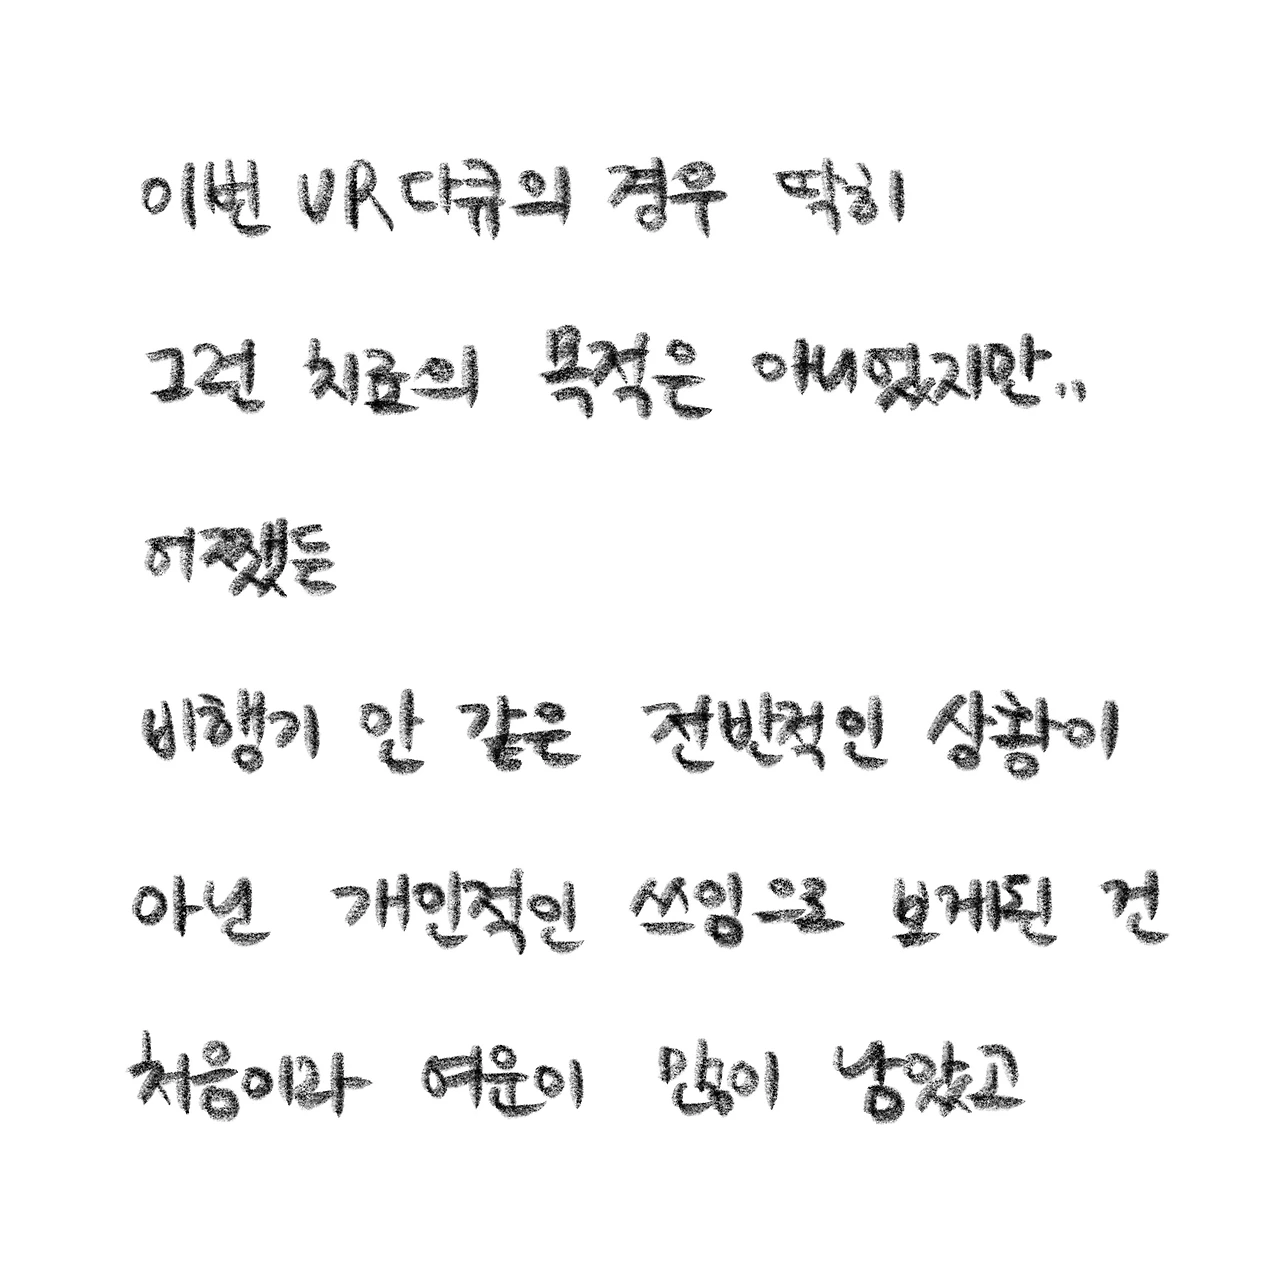 이번 VR다큐의 경우 딱히
그런 치료의 목적은 아니었지만..
어쨌든
비행기 안 같은 전반적인 상황이
아닌 개인적인 쓰임으로 보게된 건
처음이라 여운이 많이 남았고